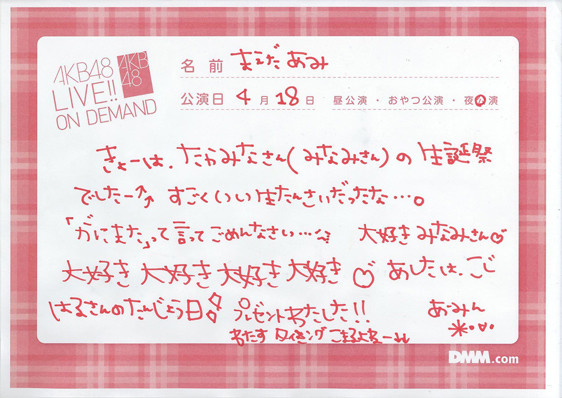 AKB48
LIVE!!
ON DEMAND
AKB
48
名前 まえだあみ
公演日 4月18日 昼公演・おやつ公演・夜公演
きょーは、たかみなさん(みなみさん)の生誕祭
でしたー↑↑ すごくいい生たんさいだったな…。
「がにまた」って言ってごめんなさい… 大好きみなみさん♡
大好き 大好き 大好き 大好き♡ あしたは、こじ
はるさんのたんじょう日 プレゼントわたした!! あーみん
わたすタイミングこまるよねーん
DMM.com